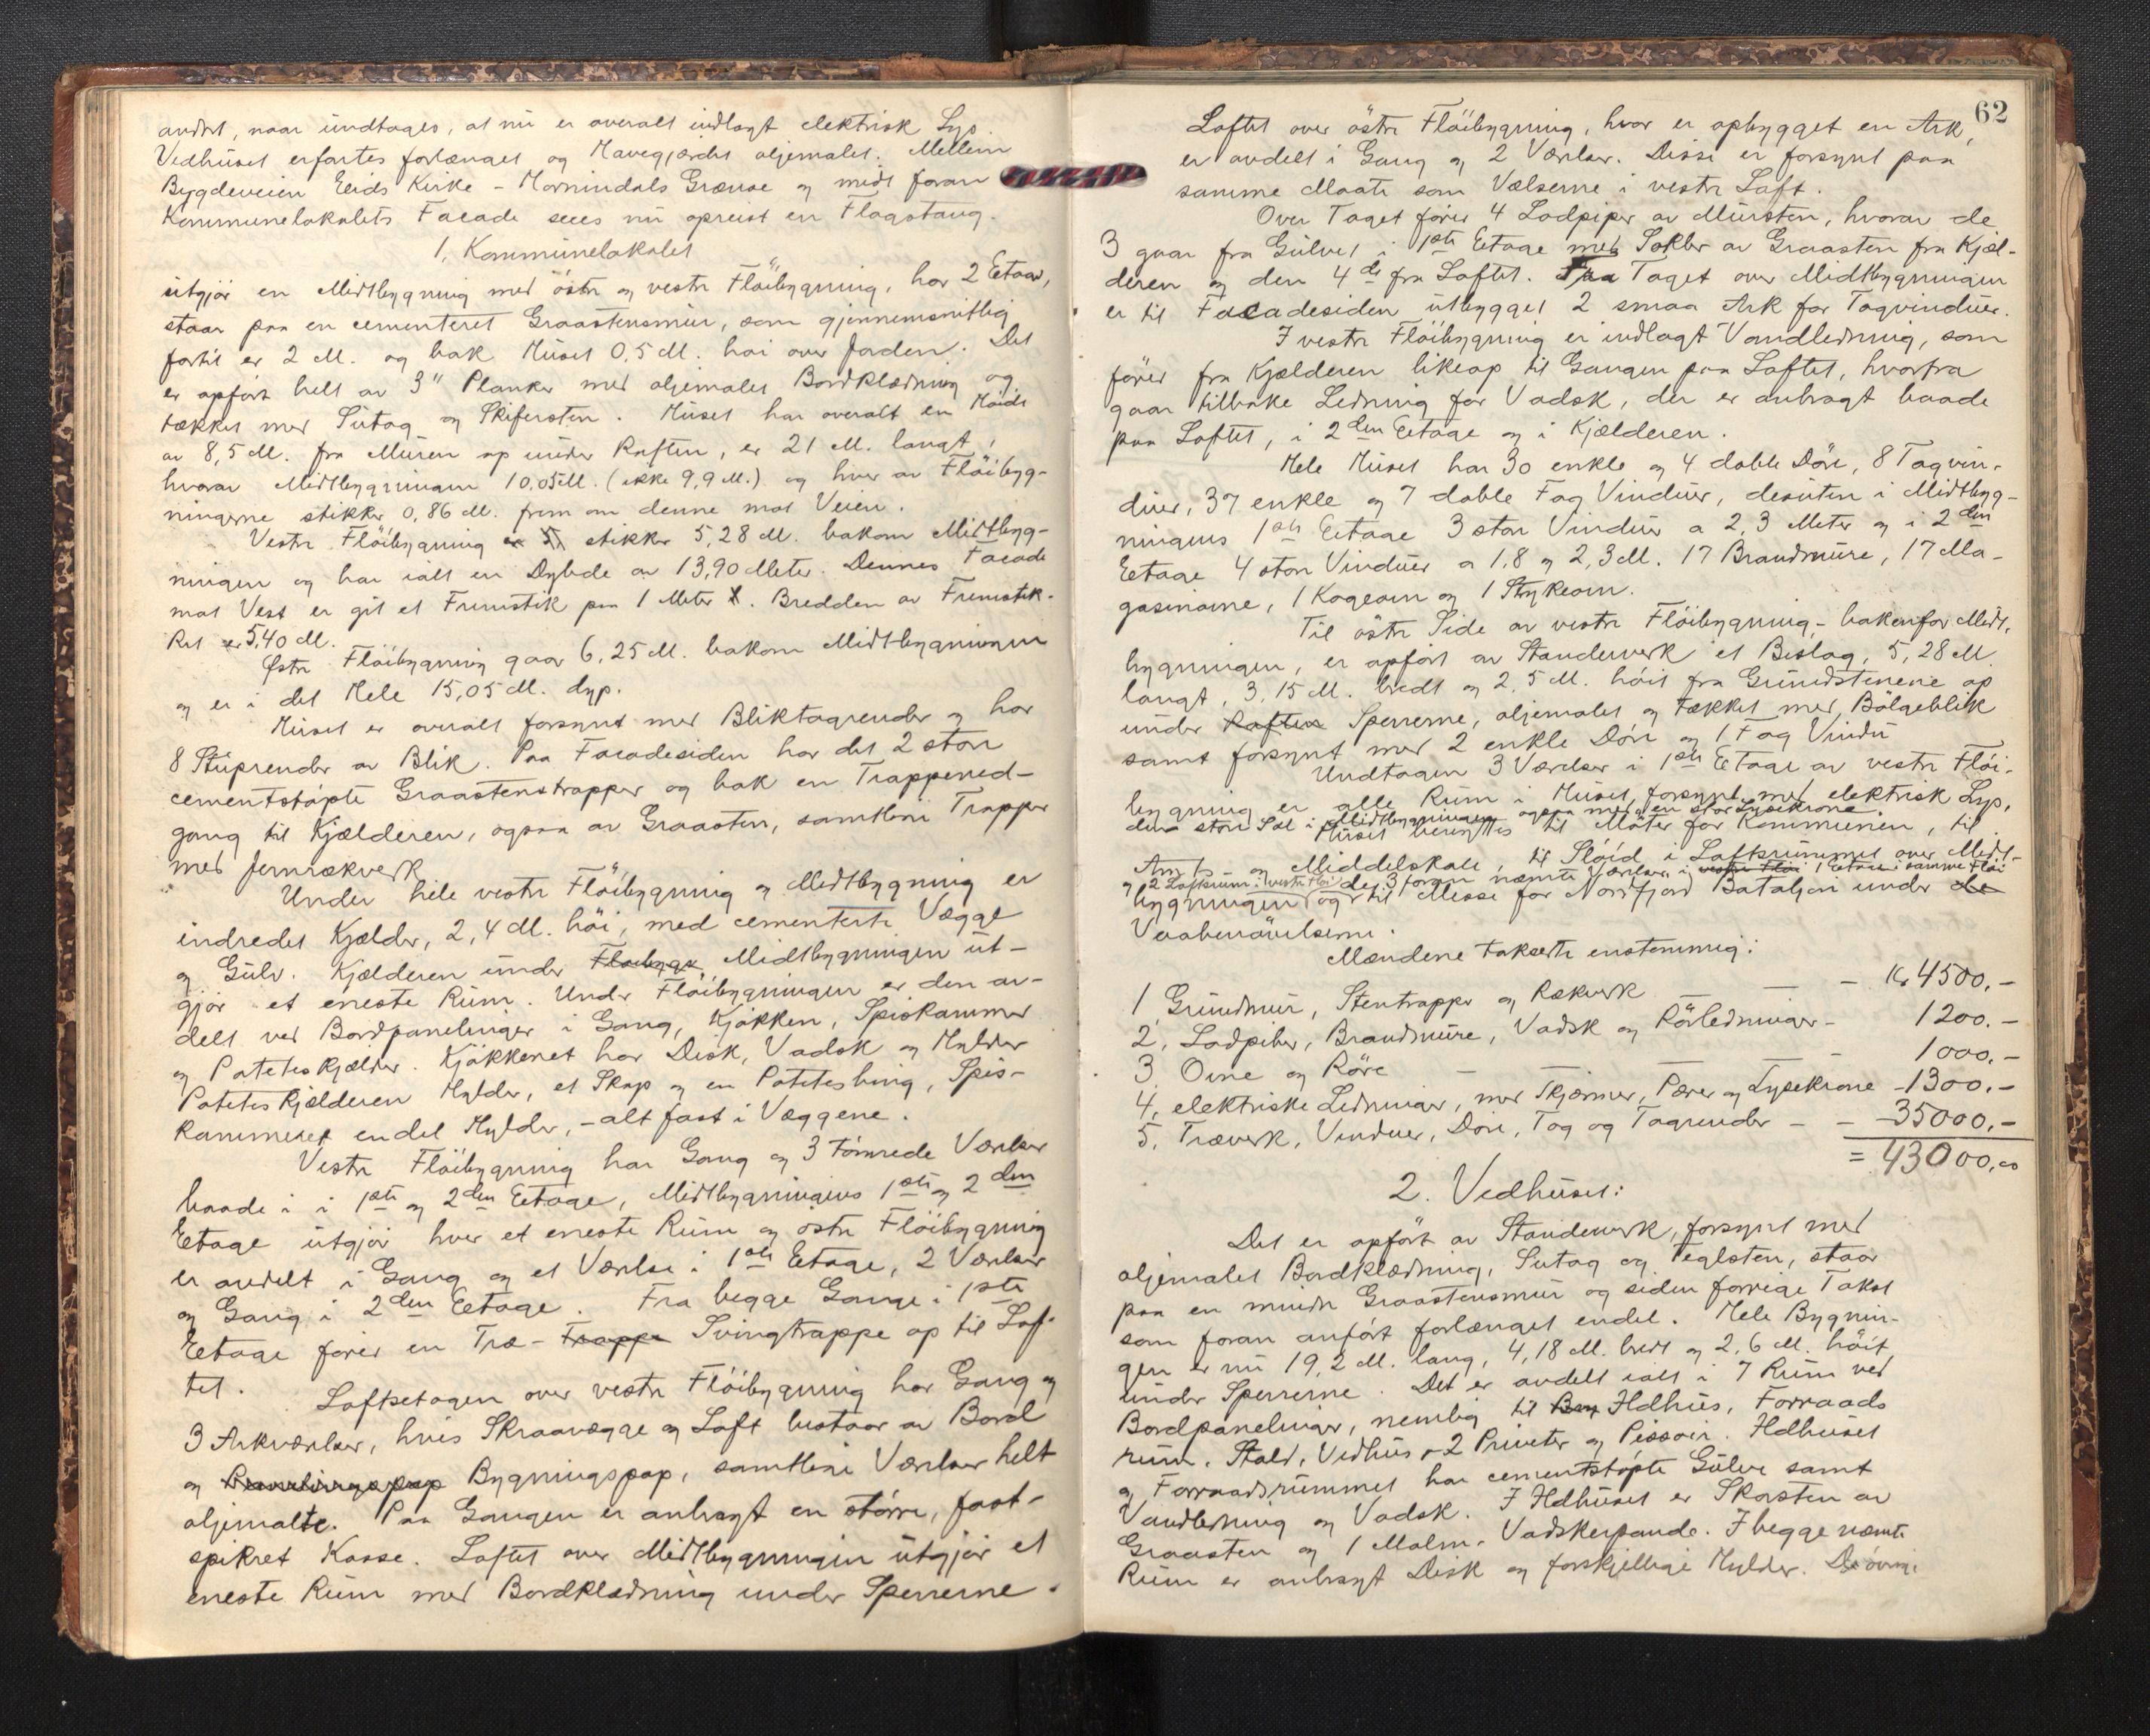 andet, naar undtages, at nu er overalt indlagt elektrisk Lys.
Vedhuset erfartes forlænget og Havegjærdet oljemalet. Mellem
Bygdeveien Eids Kirke – Hornindals Grænse og midt foran
Kommunelokalets Facade sees nu opreist en Flagstang.
1, Kommunelokalet
utgjør en Midtbygning med østre og vestre Fløibygning, har 2 Etager,
staar paa en cementeret Graastensmur, som gjennemsnitlig
fortil er 2 M. og bak Huset 0,5 M. høi over Jorden. Det
er opført helt av 3" Planker med oljemalet Bordklædning og
tækket med Sutag og Skifersten. Huset har overalt en Høide
av 8,5 M. fra Muren op under Raften, er 21 M. langt,
hvorav Midtbygningen 10,05 M. (ikke 9,9 M.) og hver av Fløibyg-
ningerne stikker 0,86 M. frem om denne mot Veien.
Vestre Fløibygning stikker 5,28 M. bakom Midtbyg-
ningen og har ialt en Dybde av 13,90 Meter. Dennes Facade
mot Vest er git et Fremstik paa 1 Meter. Bredden av Fremstik-
ket er 5,40 M.
Østre Fløibygning gaar 6,25 M. bakom Midtbygningen
og er i det Hele 15,05 M. dyp.
Huset er overalt forsynt med Bliktagrender og har
8 Stuprender av Blik. Paa Facadesiden har det 2 store
cementstøpte Graastenstrapper og bak en Trappened-
gang til Kjælderen, ogsaa av Graasten, samtlige Trapper
med Jernrækverk
Under hele vestre Fløibygning og Midtbygning er
indredet Kjælder, 2,4 M. høi, med cementerte Vægge
og Gulv. Kjælderen under Fløibygn Midtbygningen ut-
gjør et eneste Rum. Under Fløibygningen er den av-
delt ved Bordpanelinger i Gang, Kjøkken, Spiskammer
og Poteteskjælder. Kjøkkenet har Disk, Vadsk og Hylder
Poteteskjælderen Hylder, et Skap og en Potetesbing, Spis-
kammeret endel Hylder, – alt fast i Væggene.
Vestre Fløibygning har Gang og 3 tømrede Værelser
baade i i 1ste og 2den Etage, Midtbygningens 1ste og 2den
Etage utgjør hver et eneste Rum og østre Fløibygning
er avdelt i Gang og et Værelse i 1ste Etage, 2 Værelser
og Gang i 2den Etage. Fra begge Gange i 1ste
Etage fører en Træ- Trappe Svingtrappe op til Lof-
tet.
Loftsetagen over vestre Fløibygning har Gang og
3 Arkværelser, hvis Skraavægge og Loft bestaar av Bord
og Bygningspap, samtlige Værelser helt
oljemalte. Paa Gangen er anbragt en større, fast-
spikret Kasse. Loftet over Midtbygningen utgjør et
eneste Rum med Bordklædning under Sperrerne.
62
Loftet over østre Fløibygning, hvor er opbygget en Ark,
er avdelt i Gang og 2 Værelser. Disse er forsynt paa
samme Maate som Vælserne i vestre Loft.
Over Taget fører 4 Lodpiper av Mursten, hvorav de
3 gaar fra Gulvet i 1ste Etage med Sokler av Graasten fra Kjæl-
deren og den 4de fra Loftet. Fra Taget over Midtbygningen
er til Facadesiden utbygget 2 smaa Ark for Tagvinduer.
I vestre Fløibygning er indlagt Vandledning, som
fører fra Kjælderen likeop til Gangen paa Loftet, hvorfra
gaar tilbake Ledning for Vadsk, der er anbragt baade
paa Loftet, i 2den Etage og i Kjælderen.
Hele Huset har 30 enkle og 4 doble Døre, 8 Tagvin-
duer, 37 enkle og 7 doble Fag Vinduer, desuten i Midtbyg-
ningens 1ste Etage 3 store Vinduer a 2,3 Meter og i 2den
Etage 4 store Vinduer a 1,8 og 2,3 M. 17 Brandmure, 17 Ma-
gasinovne, 1 Kogeovn og 1 Strykeovn.
Til østre Side av vestre Fløibygning, – bakenfor Midt-
bygningen, er opført av Standerverk et Bislag, 5,28 M.
langt, 3,15 M. bredt og 2,5 M. høit fra Grundstenene op
under Raften Sperrerne, oljemalet og tækket med Bølgeblik
samt forsynt med 2 enkle Døre og 1 Fag Vindu
Undtagen 3 Værelser i 1ste Etage av vestre Fløi-
bygning er alle Rum i Huset forsynt med elektrisk Lys,
den store Sal i Midtbygningen ogsaa med en stor Lysekrone
Huset benyttes til Møter for Kommunen, til
Amts og Middelskole, til Sløid i Loftsrummet over Midt-
og 2 Loftsrum i vestre Fløi de 3 foran nævnte Værelser i vestre Fløi 1 Etage i samme Fløi
bygningen og til Messe for Nordfjord Bataljon under de
Vaabenøvelserne.
Mændene takserte enstemmig:
1, Grundmur, Stentrapper og Rækverk – – – Kr 4500.–
2, Lodpiber, Brandmure, Vadsk og Rørledninger – 1200.–
3, Ovne og Røre – – – 1000.–
4, elektriske Ledninger, med Skjærmer, Pærer og Lysekrone – 1300.–
5, Træverk, Vinduer, Døre, Tag og Tagrender – – 35000.–
= 43000.00
2. Vedhuset:
Det er opført av Standerverk, forsynt med
oljemalet Bordklædning, Sutag og Teglsten, staar
paa en mindre Graastensmur og siden forrige Takst
som foran anført forlænget endel. Hele Bygnin-
gen er nu 19,2 M. lang, 4,18 M. bredt og 2,6 M. høit
under Sperrerne. Det er avdelt ialt i 7 Rum ved
Bordpanelinger, nemlig til Ildhus, Forraads
rum, Stald, Vedhus, 2 Priveter og Pissoir. Ildhuset
og Forraadsrummet har cementstøpte Gulve samt
Vandledning og Vadsk. I Ildhuset er Skorsten av
Graasten og 1 Malm- Vadskerpande. I begge nævnte
Rum er anbragt Disk og forskjellige Hylder. De øvrige